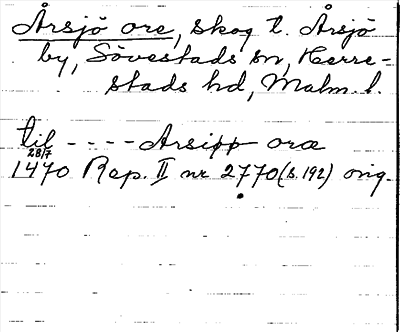 Årsjö ore, skog t. Årsjö
by, Sövestads sn, Herre-
stads hd, Malm. l.
til - - - - Arsipp oræ
28/7
1470 Rep. II nr 2770 (s. 192) orig.